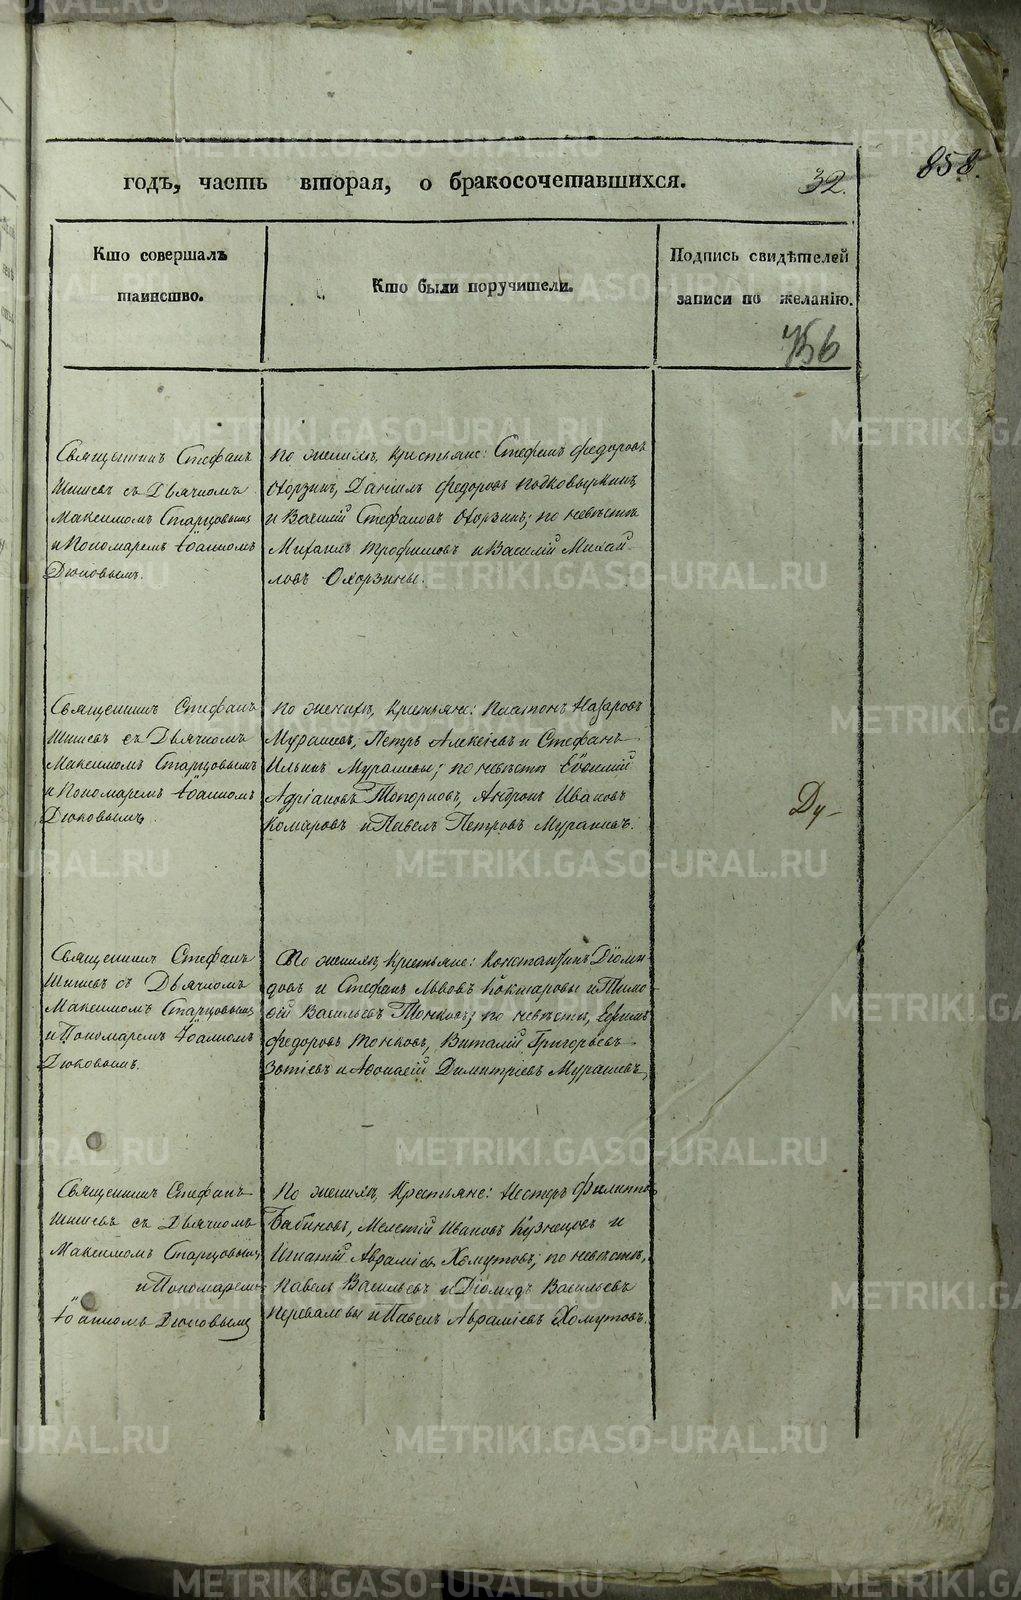 годъ, часть вторая, о бракосочетавшихся. 32.
858.
Кто совершалъ
таинство.
Кто были поручители.
Подпись свидѣтелей
записи по желанію.
756
Священникъ Стефанъ
Шишевъ съ Дьячкомъ
Максимомъ Старцовымъ
и Пономаремъ Іоанномъ
Дюковымъ.
по женихѣ, крестьяне: Стефанъ Федоровъ
Охорзинъ, Даніилъ Федоровъ Подковыркинъ
и Василій Стефановъ Охорзинъ; по невѣстѣ
Михаилъ Трофимовъ и Василій Михай
ловъ Охорзины.
Священникъ Стефанъ
Шишевъ съ Дьячкомъ
Максимомъ Старцовымъ
и Пономаремъ Іоанномъ
Дюковымъ.
по женихѣ, крестьяне: Платонъ Назаровъ
Мурашевъ, Петръ Алексѣевъ и Стефанъ
Ильинъ Мурашевы; по невѣстѣ Евѳимій
Адріановъ Топорковъ, Андронъ Ивановъ
Комаровъ и Павелъ Петровъ Мурашевъ.
Ду-
Священникъ Стефанъ
Шишевъ съ Дьячкомъ
Максимомъ Старцовымъ
и Пономаремъ Іоанномъ
Дюковымъ.
По женихѣ, Крестьяне: Константинъ Діоми-
довъ и Стефанъ Львовъ Кокшаровы и Тимо-
ѳій Васильевъ Тонковъ; по невѣстѣ, Ефимъ
Федоровъ Тонковъ, Виталій Григорьевъ
Зотіевъ и Аѳонасій Димитріевъ Мурашевъ,
Священникъ Стефанъ
Шишевъ съ Дьячкомъ
Максимомъ Старцовымъ
и Пономаремъ
Іоанномъ Дюковымъ
По женихѣ, Крестьяне: Несторъ Филиппо
Бабиновъ, Мелетій Ивановъ Кузнецовъ и
Игнатій Авраміевъ Хомутовъ; по невѣстѣ,
Павелъ Васильевъ и Діомидъ Васильевъ
Переваловы и Павелъ Авраміевъ Хомутовъ.
METRIKI.GASO-URAL.RU